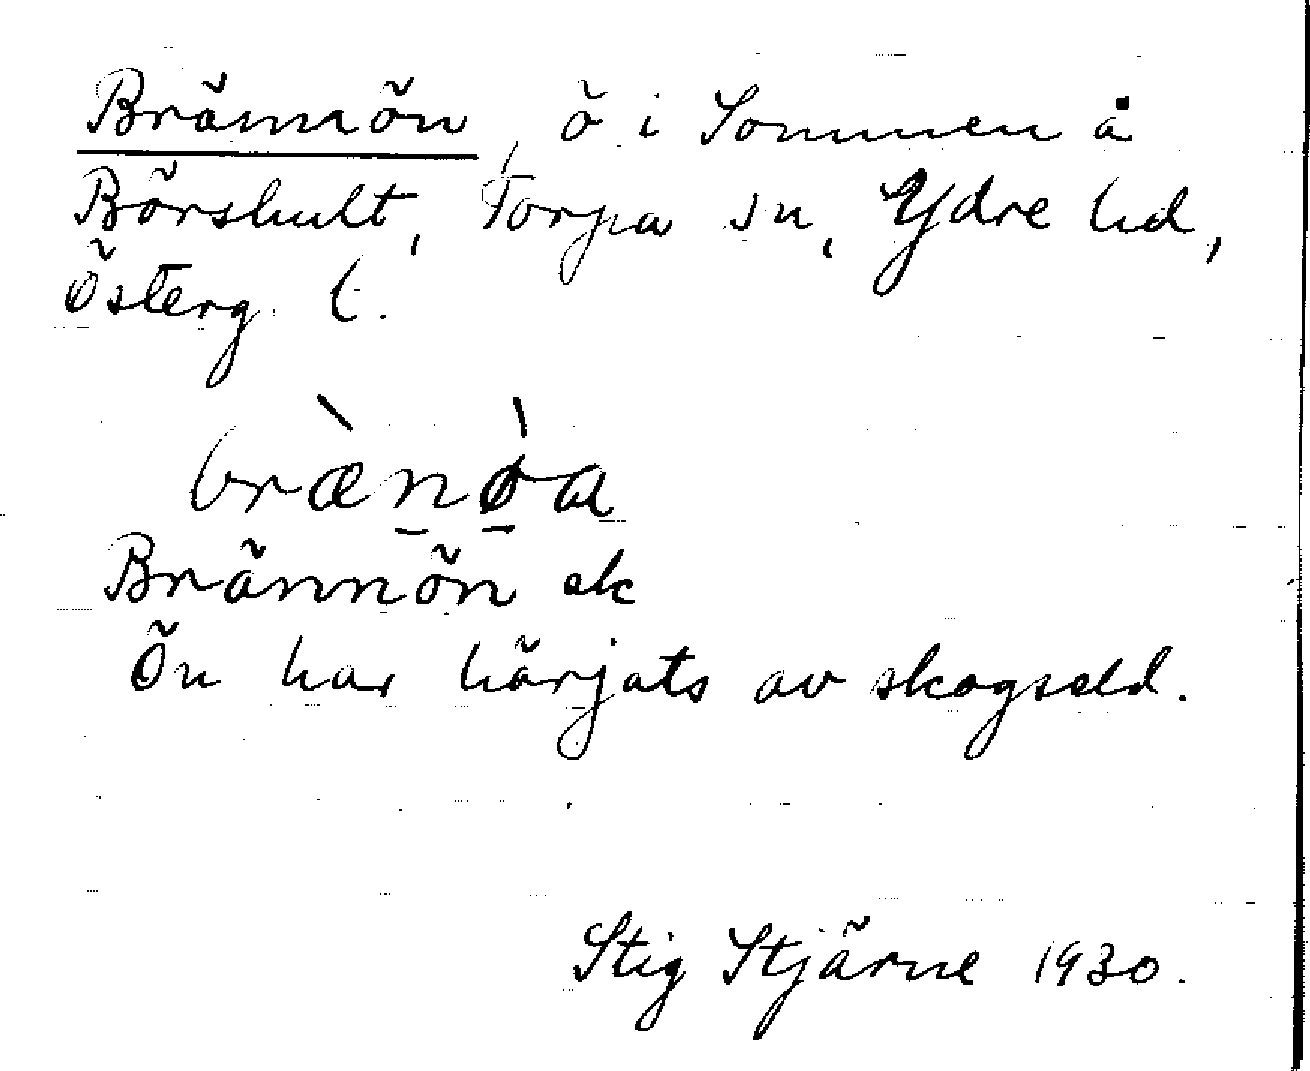 Brännön, ö i Sommen å
Börshult, Torpa sn, Ydre hd,
Österg. l.
bræ̀nø̀a
Brännön ek
Ön har härjats av skogseld.
Stig Stjärne 1930.